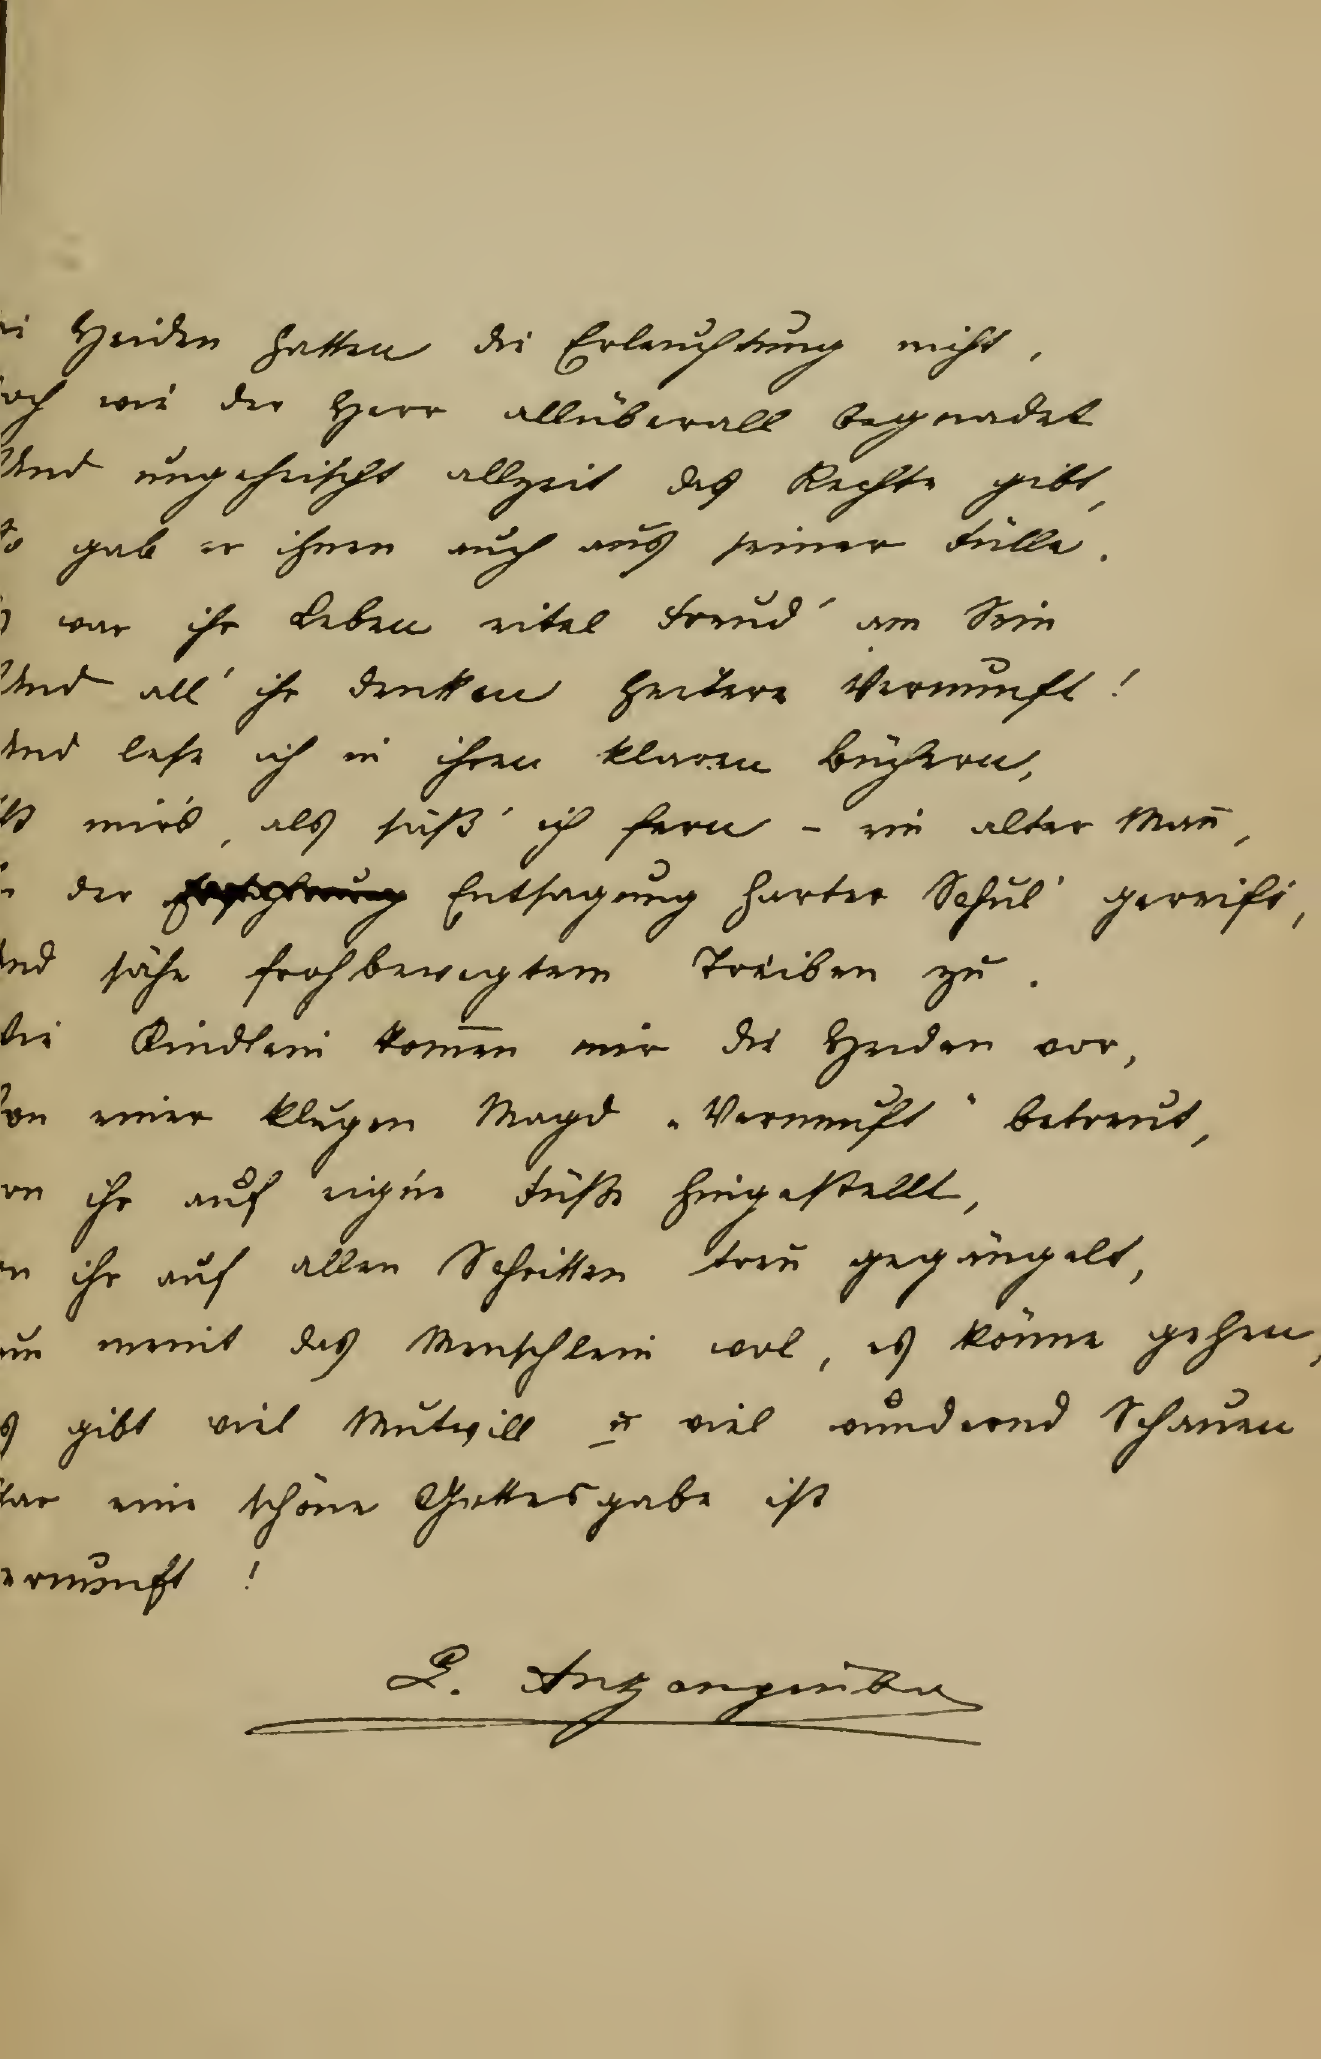 Heiden hatten die Erleuchtung nicht,
wie der Herr allüberall begnadet
Und ungeheischt allzeit das Rechte gibt,
So gab er ihnen auch aus seiner Fülle.
war ihr Leben eitel Freud' am Sein
Und all' ihr denken heitere Vernunft!
Und lese ich in ihren klaren Büchern,
mir's, als säß' ich fern – ein alter Mañ,
der Entsagung harter Schul' gereift,
Und sähe frohbewegtem Treiben zu.
Wie Kindlein kom̄en mir die Heiden vor,
Von einer klugen Magd „Vernunft" betreut,
ihr auf eig'ne Füße hingestellt,
ihr auf allen Schritten treu gegängelt,
meint das Menschlein wol, es könne gehen,
gibt viel Mutwill u viel wundernd Schauen
eine schöne Gottesgabe ist
ernunft!
L. Anzengruber